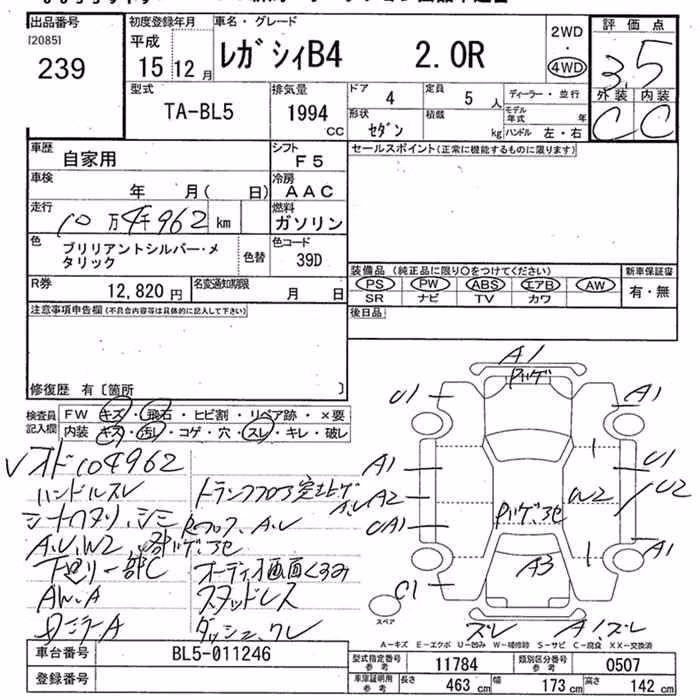 出品番号
[2085]
239
初度登録年月
平成
15年12月
車名・グレード
レガシィB4 2.0R
2WD
・
4WD
評価点
3.5
外装 内装
C C
型式
TA-BL5
排気量
1994
CC
ドア
4
定員
5 人
形状
セダン
積載
kg
ディーラー・並行
モデル年式 年
ハンドル 左・右
車歴
自家用
シフト
F5
車検
年 月( 日)
冷房
AAC
走行
10万4千962 km
燃料
ガソリン
色
ブリリアントシルバー・メ
タリック
色替
色コード
39D
R券
12,820 円
名変通知期限
月 日
セールスポイント(正常に機能するものに限ります)
装備品 (純正品に限り○をつけてください)
PS PW ABS エアB AW
SR ナビ TV カワ
新車保証書
有・無
後日品
注意事項申告欄(不具合内容等は具体的に記入して下さい)
修復歴 有〔箇所 〕
検査員
記入欄
FW キズ・飛石・ヒビ割・リペア跡・×要
内装 キズ・汚レ・コゲ・穴・スレ・キレ・破レ
オド104962
ハンドルスレ
シートヘタリ、シミ
A.U.W2
下廻り一部C
AW.A
オーディオ画面くすみ
スタッドレス
A1
U1
A1
A1
A2
U1
U2
W2
A1
A3
C1
スレ
スペア
A-キズ E-エクボ U-凹み W-補修跡 S-サビ C-腐食 XX-交換済
車台番号
BL5-011246
登録番号
型式指定番号
参考
11784
類別区分番号
参考
0507
車庫証明用
参考
長さ 463 cm
幅 173 cm
高さ 142 cm